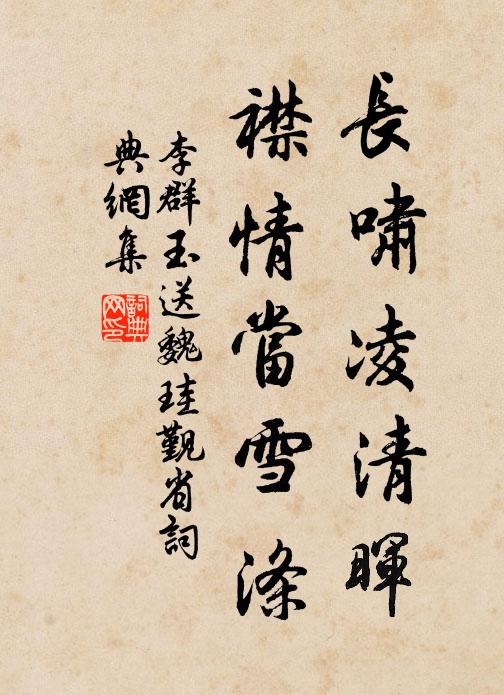 長嘯凌清暉
襟情當雪滌
李群玉送魏珪觐省詞
典網集
詞典网印